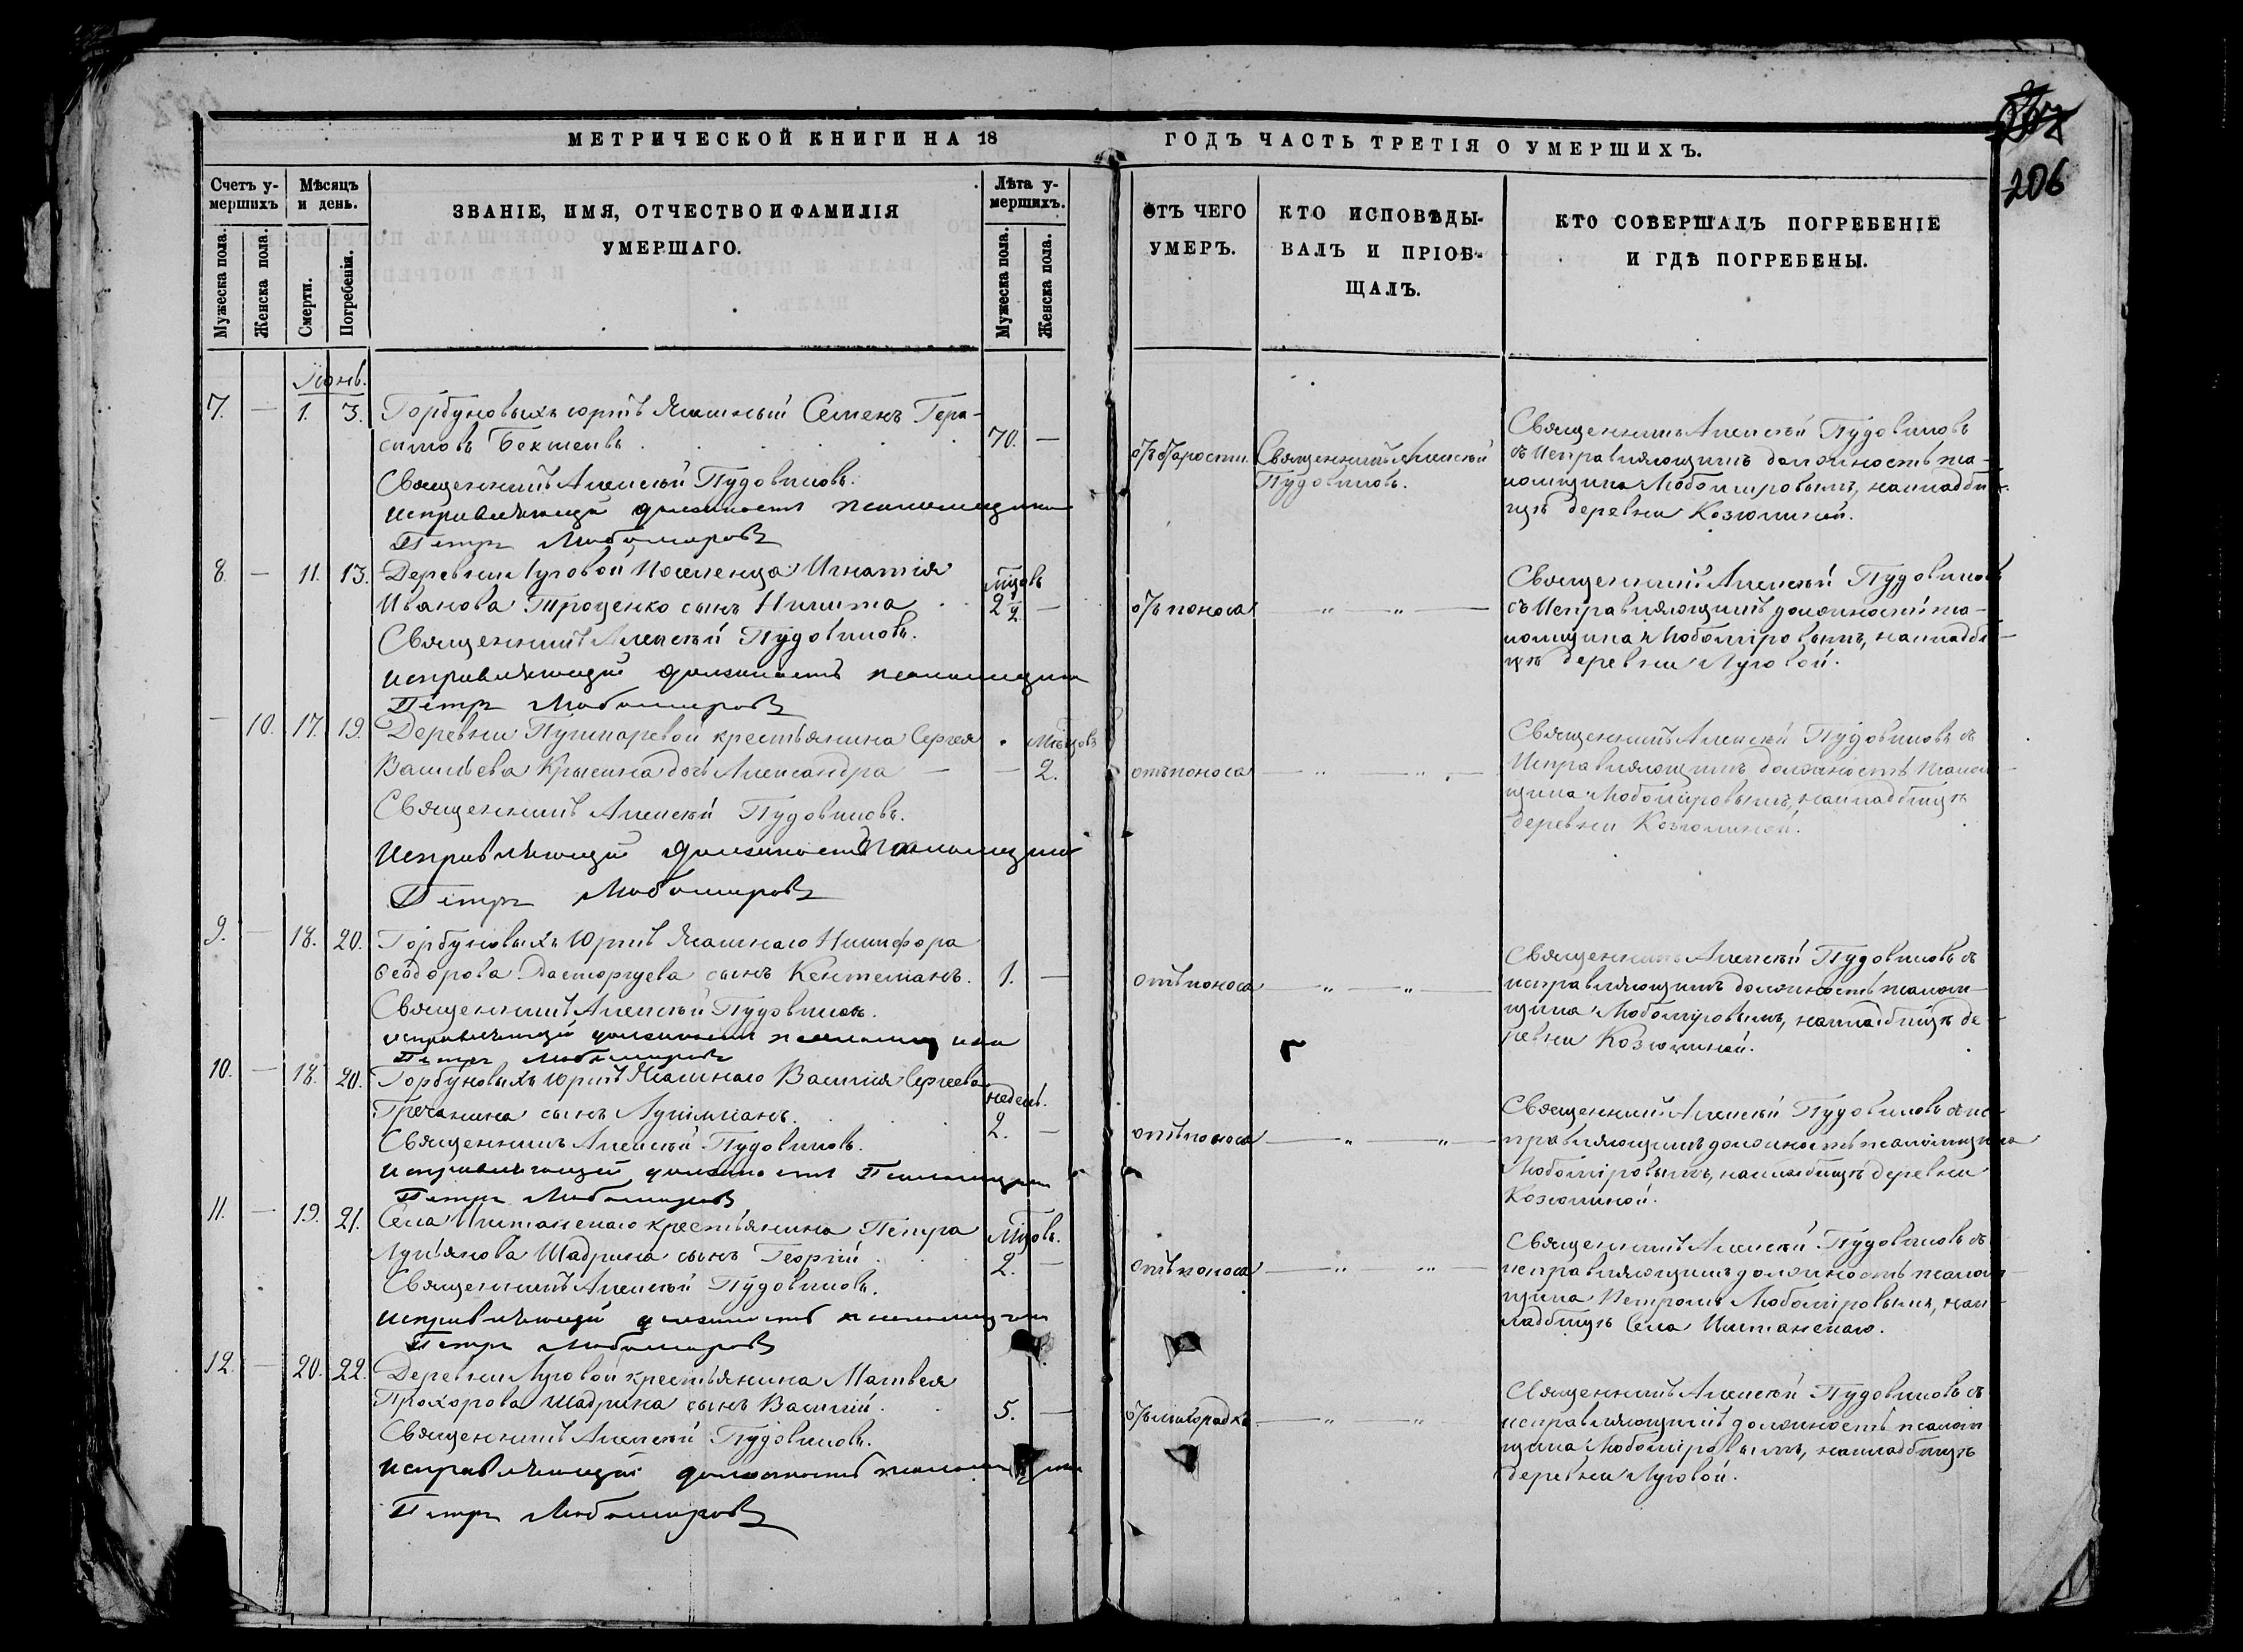 206
МЕТРИЧЕСКОЙ КНИГИ НА 18
ГОДЪ ЧАСТЬ ТРЕТІЯ О УМЕРШИХЪ.
Счетъ у-
мершихъ
Мѣсяцъ
и день.
ЗВАНІЕ, ИМЯ, ОТЧЕСТВО И ФАМИЛІЯ
УМЕРШАГО.
Лѣта у-
мершихъ.
Мужеска пола.
Женска пола.
Смерти.
Погребенія.
Мужеска пола.
Женска пола.
ОТЪ ЧЕГО
УМЕРЪ.
КТО ИСПОВѢДЫ-
ВАЛЪ И ПРІОБ-
ЩАЛЪ.
КТО СОВЕРШАЛЪ ПОГРЕБЕНІЕ
И ГДѢ ПОГРЕБЕНЫ.
Іюнь.
7. — 1. 3. Горбуновыхъ юртъ Ясашный Семенъ Гера-
симовъ 70. —
Священникъ Алексѣй Пудовиковъ.
исправляющій должность псаломщика
Петръ Любомировъ
отъ старости.
Священникъ Алексѣй
Пудовиковъ.
Священникъ Алексѣй Пудовиковъ
съ Исправляющимъ должность пса-
ломщика Любомировымъ, на кладби-
щѣ деревни Козюлиной.
8. — 11. 13. Деревни Луговой Поселенца Игнатія мцовъ
Иванова Троценко сынъ Никита 2 1/2 —
Священникъ Алексѣй Пудовиковъ.
исправляющій должность псаломщика
Петръ Любомировъ
отъ поноса — „ — „ —
Священникъ Алексѣй Пудовиковъ
съ Исправляющимъ должность пса-
ломщика Любоміровымъ, на кладби-
щѣ деревни Луговой.
— 10. 17. 19. Деревни Пушкаревой крестьянина Сергея Мѣсцовъ
Васильева дочь Александра — — 2.
Священникъ Алексѣй Пудовиковъ.
Исправляющій должность псаломщика
Петръ Любомировъ
отъ поноса — „ — „ —
Священникъ Алексѣй Пудовиковъ съ
Исправляющимъ должность псалом-
щика Любоміровымъ, на кладбищѣ
деревни Козюлиной.
9. — 18. 20. Горбуновыхъ Юртъ Ясашнаго Никифора
Ѳеодорова сынъ 1. —
Священникъ Алексѣй Пудовиковъ.
исправляющій должность псаломщика
Петръ Любомировъ
отъ поноса — „ — „ —
Священникъ Алексѣй Пудовиковъ съ
исправляющимъ должность псалом-
щика Любоміровымъ, на кладбищѣ де-
ревни Козюлиной.
10. — 18. 20. Горбуновыхъ юртъ Ясашнаго Василія Сергеева недѣль.
сынъ 2. —
Священникъ Алексѣй Пудовиковъ.
Исправляющій должность Псаломщика
Петръ Любомировъ
отъ поноса — „ — „ —
Священникъ Алексѣй Пудовиковъ съ ис-
правляющимъ должность псаломщика
Любоміровымъ, на кладбищѣ деревни
Козюлиной.
11. — 19. 21. Села Иштанскаго крестьянина Петра Мцовъ.
Лукьянова Шадрина сынъ Георгій 2. —
Священникъ Алексѣй Пудовиковъ.
исправляющій должность псаломщика
Петръ Любомировъ
отъ поноса — „ — „ —
Священникъ Алексѣй Пудовиковъ съ
исправляющимъ должность псалом-
щика Петромъ Любоміровымъ, на к-
ладбищѣ Села Иштанскаго.
12. — 20. 22. Деревни Луговой крестьянина Матвея
Прохорова Шадрина сынъ Василій. 5. —
Священникъ Алексѣй Пудовиковъ.
исправляющій должность псаломщика
Петръ Любомировъ
отъ лихорадки — „ — „ —
Священникъ Алексѣй Пудовиковъ съ
исправляющимъ должность псалом-
щика Любоміровымъ, на кладбищѣ
деревни Луговой.